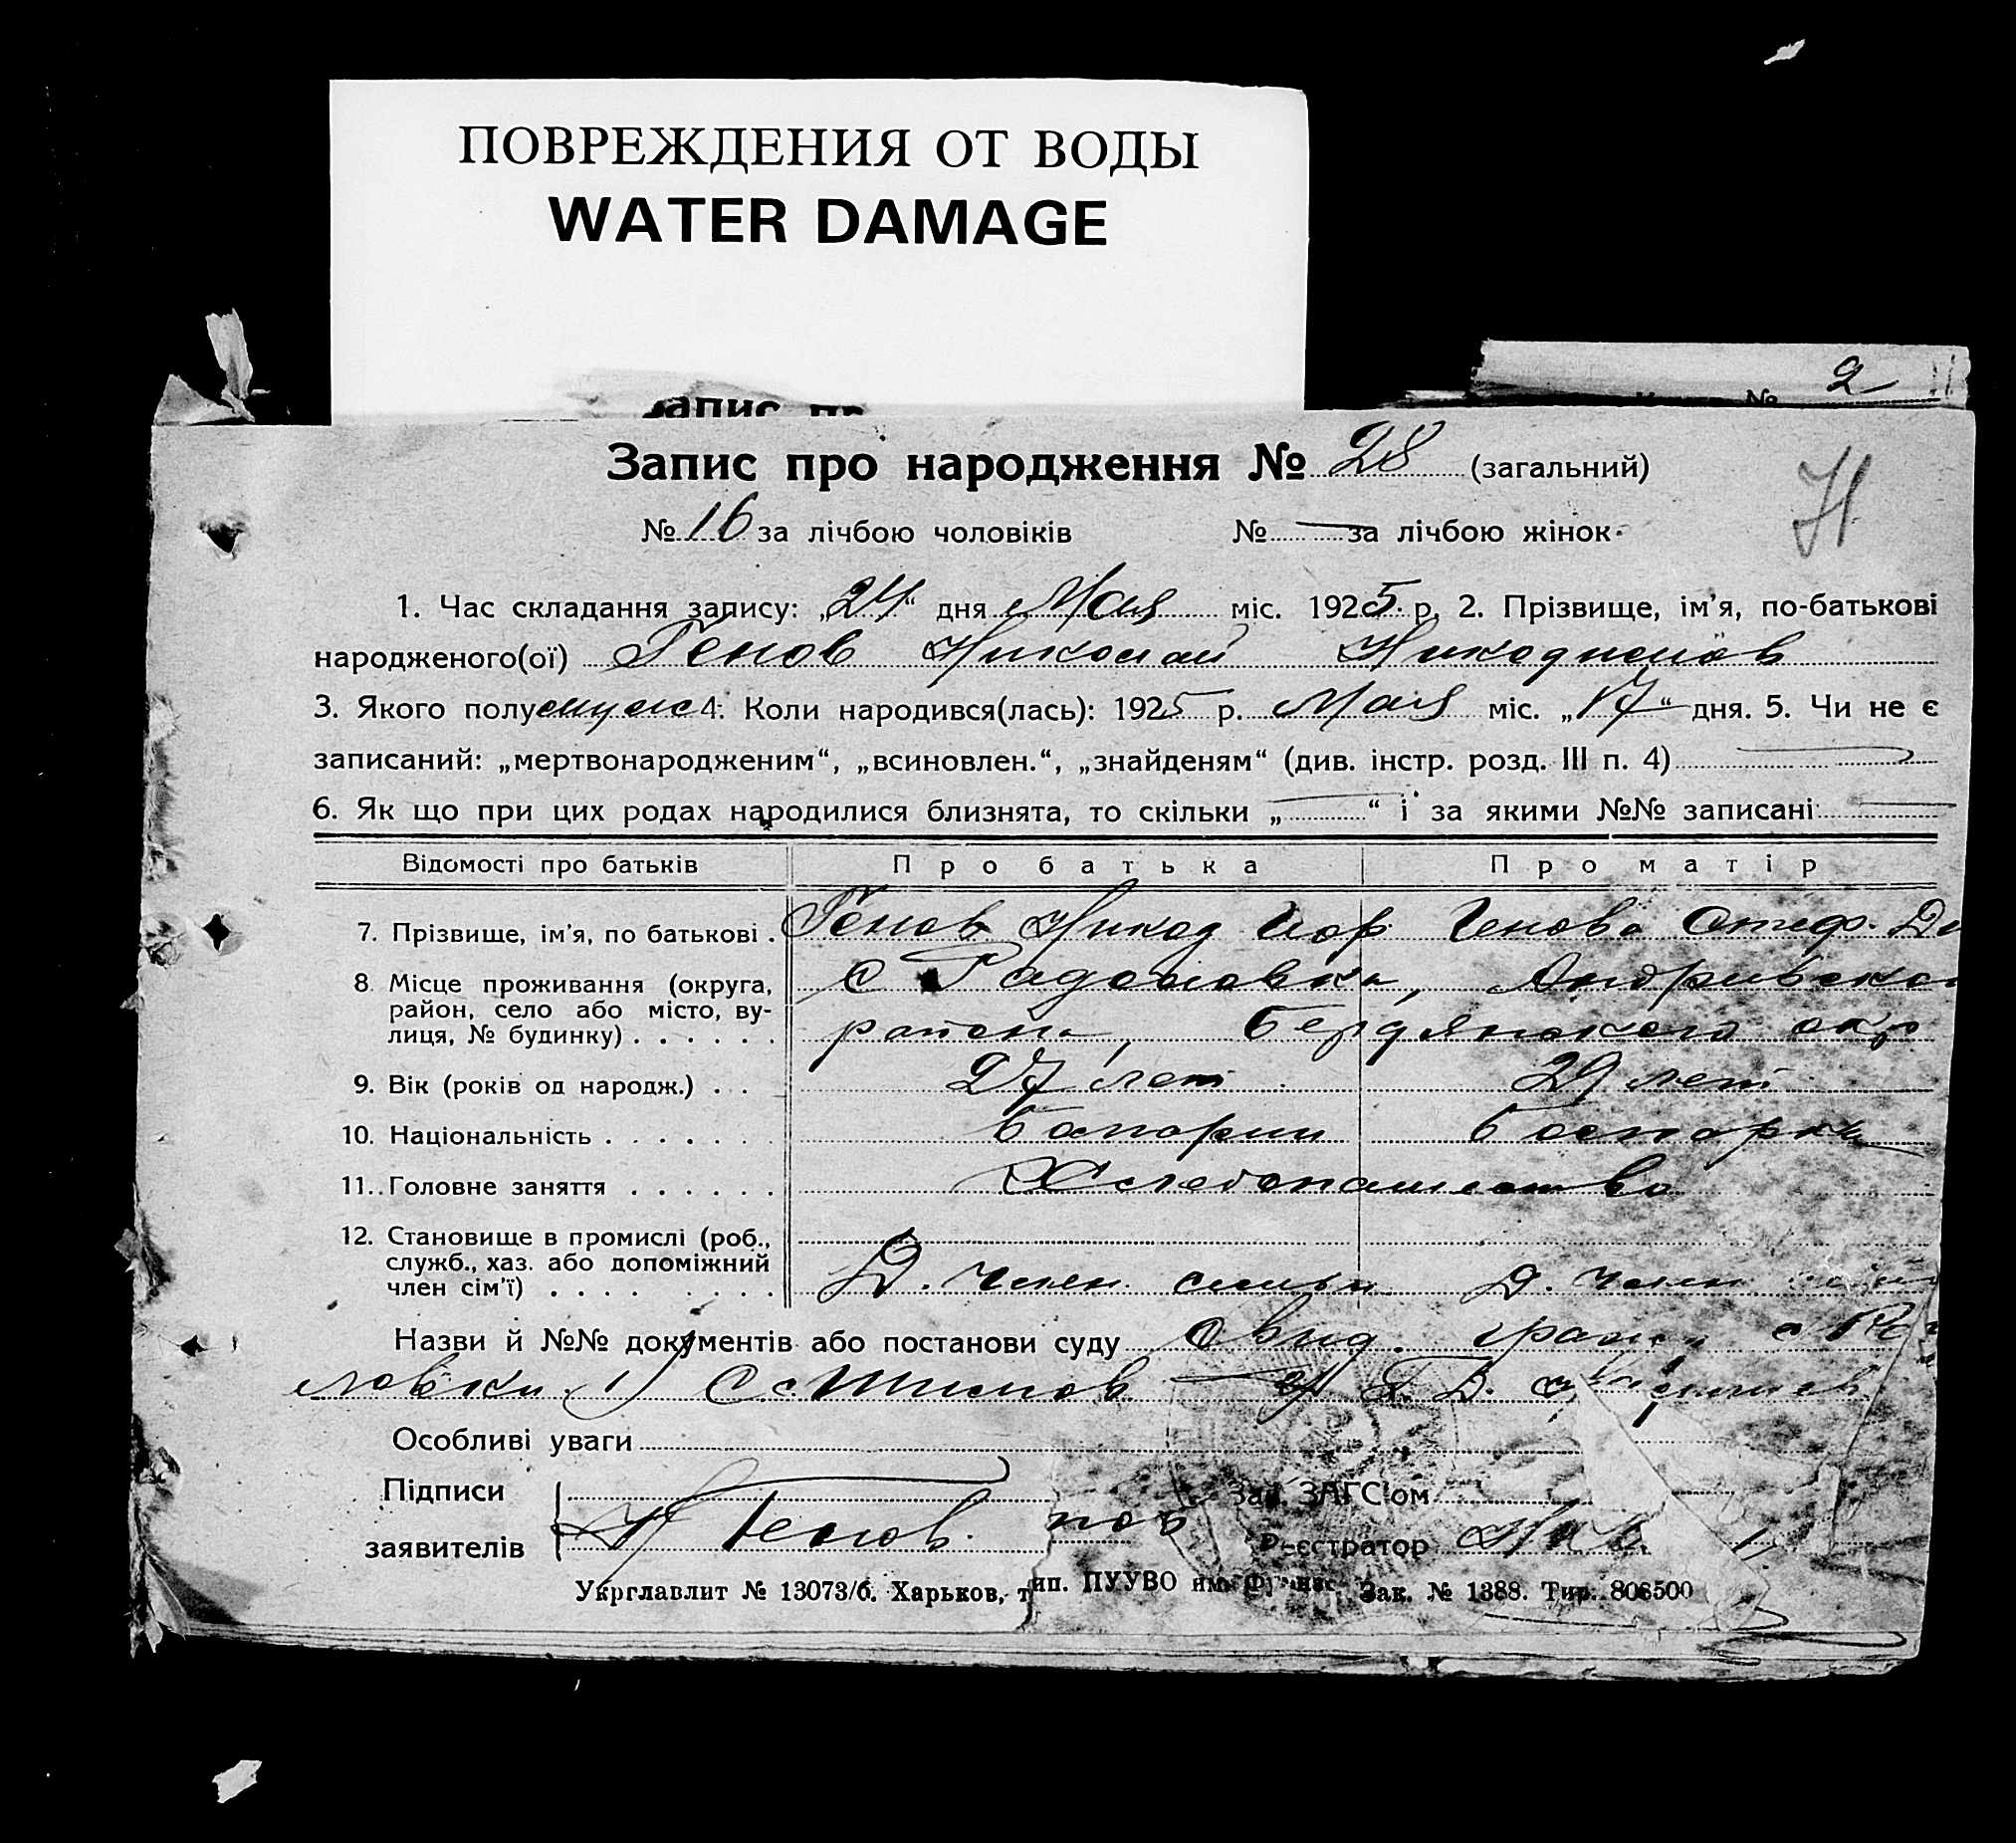 ПОВРЕЖДЕНИЯ ОТ ВОДЫ
WATER DAMAGE
№ 2
Запис про народження № 28 (загальний)
№ 16 за лічбою чоловіків № — за лічбою жінок
1. Час складання запису: „24“ дня Мая міс. 1925 р. 2. Прізвище, ім'я, по-батькові
народженого(ої) Генов Николай Никодимов
3. Якого полу муж 4. Коли народився(лась): 1925 р. Мая міс. „17“ дня. 5. Чи не є
записаний: „мертвонародженим“, „всиновлен.“, „знайденям“ (див. інстр. розд. III п. 4) —
6. Як що при цих родах народилися близнята, то скільки „—“ і за якими №№ записані —
Відомості про батьків Про батька Про матір
7. Прізвище, ім'я, по батькові . Генов Никод Иор Генова Стеф.
8. Місце проживання (округа, с Радоловка, Андривског
район, село або місто, ву-
лиця, № будинку) . . . . . . района, Бердянского окр
9. Вік (років од народж.) . . 27 лет 29 лет
10. Національність . . . . . . .
11. Головне заняття . . . . . . Хлебопашество
12. Становище в промислі (роб.,
служб., хаз. або допоміжний
член сім'ї) . . . . . . . . . Д. член семьи Д. член
Назви й №№ документів або постанови суду
Особливі уваги
Підписи Зав. ЗАГС'ом
заявителів Генов Реєстратор
Укрглавлит № 13073/б. Харьков, тип. ПУУВО им. Зак. № 1388. Тир. 806500